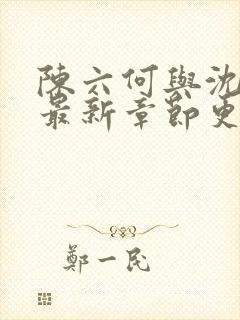 陳六何與沈
最新章節更
鄭一民